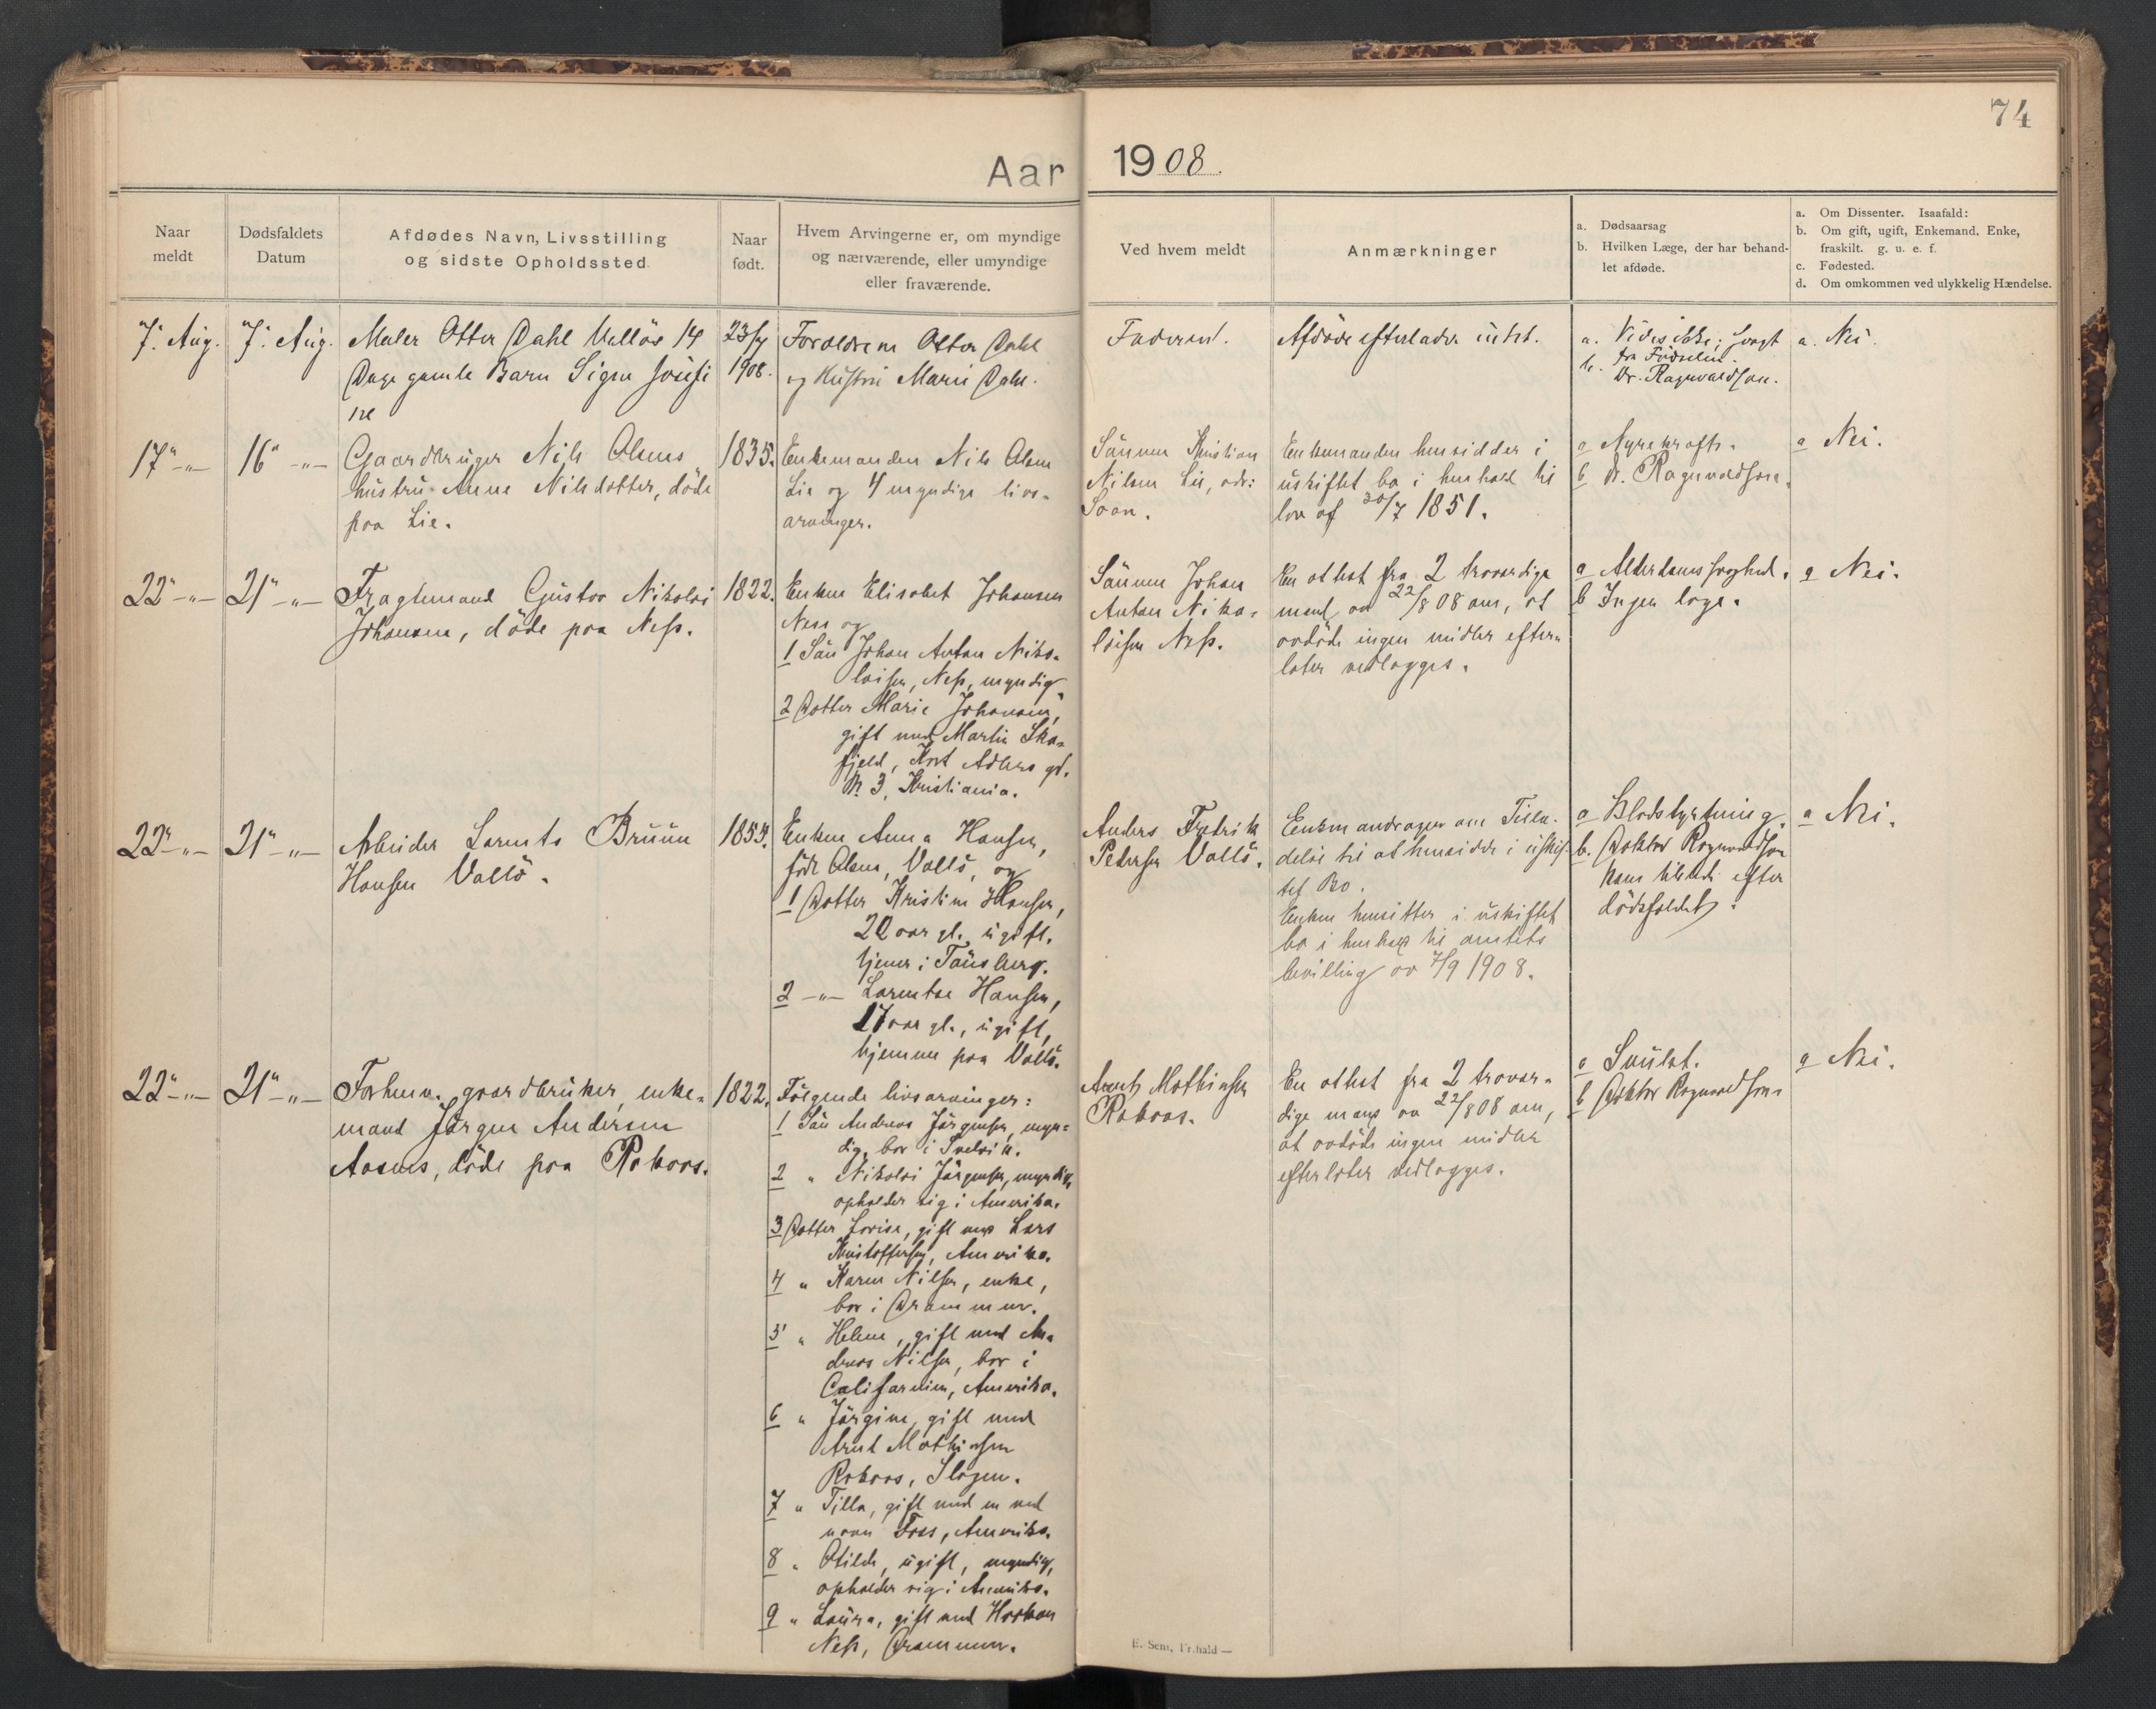 74
Aar 1908.
Naar
meldt
Dødsfaldets
Datum
Afdødes Navn, Livsstilling
og sidste Opholdssted.
Naar
født.
Hvem Arvingerne er, om myndige
og nærværende, eller umyndige
eller fraværende.
Ved hvem meldt
Anmærkninger
a. Dødsaarsag
b. Hvilken Læge, der har behand-
let afdøde.
a. Om Dissenter. Isaafald:
b. Om gift, ugift, Enkemand, Enke,
fraskilt. g. u. e. f.
c. Fødested.
d. Om omkommen ved ulykkelig Hændelse.
7. Aug.
7. Aug.
Maler Otter Dahl Vallø 14
Dage gamle Barn Signe Josefi
ne
23/7
1908.
Forældrene Otter Dahl
og Hustru Marie Dahl.
Faderen.
Afdøde efterlader intet.
a. Vides ikke; svagt
fra Fødselen.
b. Dr. Ragnvaldson.
a. Nei.
17" -"-
16" -"-
Gaardbruger Nils Olsens
hustru Anne Nilsdotter, döde
paa Lie.
1835.
Enkemanden Nils Olsen
Lie og 4 myndige livs-
arvinger.
Sönnen Kristian
Nilsen Lie, adr:
Soon.
Enkemanden hensidder i
uskiftet bo i henhold til
lov af 30/7 1851.
a Nyrekræft.
b Dr. Ragnvaldson.
a Nei.
22" -"-
21" -"-
Fragtemand Gustav Nikolai
Johansen, döde paa Ness.
1822.
Enken Elisabet Johansen
Ness og
1 Sön Johan Anton Niko-
laisen, Ness, myndig.
2 Dotter Marie Johansen,
gift med Martin Ska-
fjeld, Kort Adlers gd.
N. 3, Kristiania.
Sönnen Johan
Anton Niko-
laisen Ness.
En attest fra 2 troværdige
mænd av 22/8 08 om, at
avdöde ingen midler efter-
later vedlægges.
a Alderdomssvaghed.
b Ingen læge.
a Nei.
22" -"-
21" -"-
Arbeider Lorents Bruun
Hansen Vallö.
Enken Anna Hansen,
född Olsen, Vallö, og
1 Dotter Kristine Hansen,
20 aar gl. ugift,
tjener i Tönsberg.
2 -"- Lorentse Hansen,
17 aar gl., ugift,
hjemme paa Vallö.
Anders Fredrik
Petersen Vallö.
Enken andrager om Tilla-
delse til at hensidde i uskif-
tet Bo.
Enken hensitter i uskiftet
bo i henhold til amtets
bevilling av 7/9 1908.
a Blodstyrtning.
b. Doktor Ragnvaldson
kom tilstede efter
dödsfaldet.
a Nei.
22" -"-
21" -"-
Forhenv. gaardbruker, enke-
mand Jörgen Andersen
Aasnes, döde paa Rakaas.
1822.
Fölgende livsarvinger:
1 Sön Andreas Jörgensen, myn-
dig, bor i Svelvik.
2 " Nikolai Jörgensen, myndig,
opholder sig i Amerika.
3 Dotter Lovise, gift med Lars
Kristoffersen, Amerika.
4 " Karen Nilsen, enke,
bor i Drammen.
5 " Helene, gift med An-
dreas Nilsen, bor i
Californien, Amerika.
6 " Jörgine, gift med
Arnt Mathisen
Rakaas, Slagen.
7 " Tilla, gift med en ved
navn Foss, Amerika.
8 " Otilde, ugift, myndig,
opholder sig i Amerika.
9 " Laura, gift med Haakon
Ness, Drammen.
Arnt Mathisen
Rakaas.
En attest fra 2 trovær-
dige mænd av 22/8 08 om,
at avdöde ingen midler
efterlater vedlægges.
a Svulst.
b Doktor Ragnvaldson
a Nei.
E. Sem, Fr.hald —